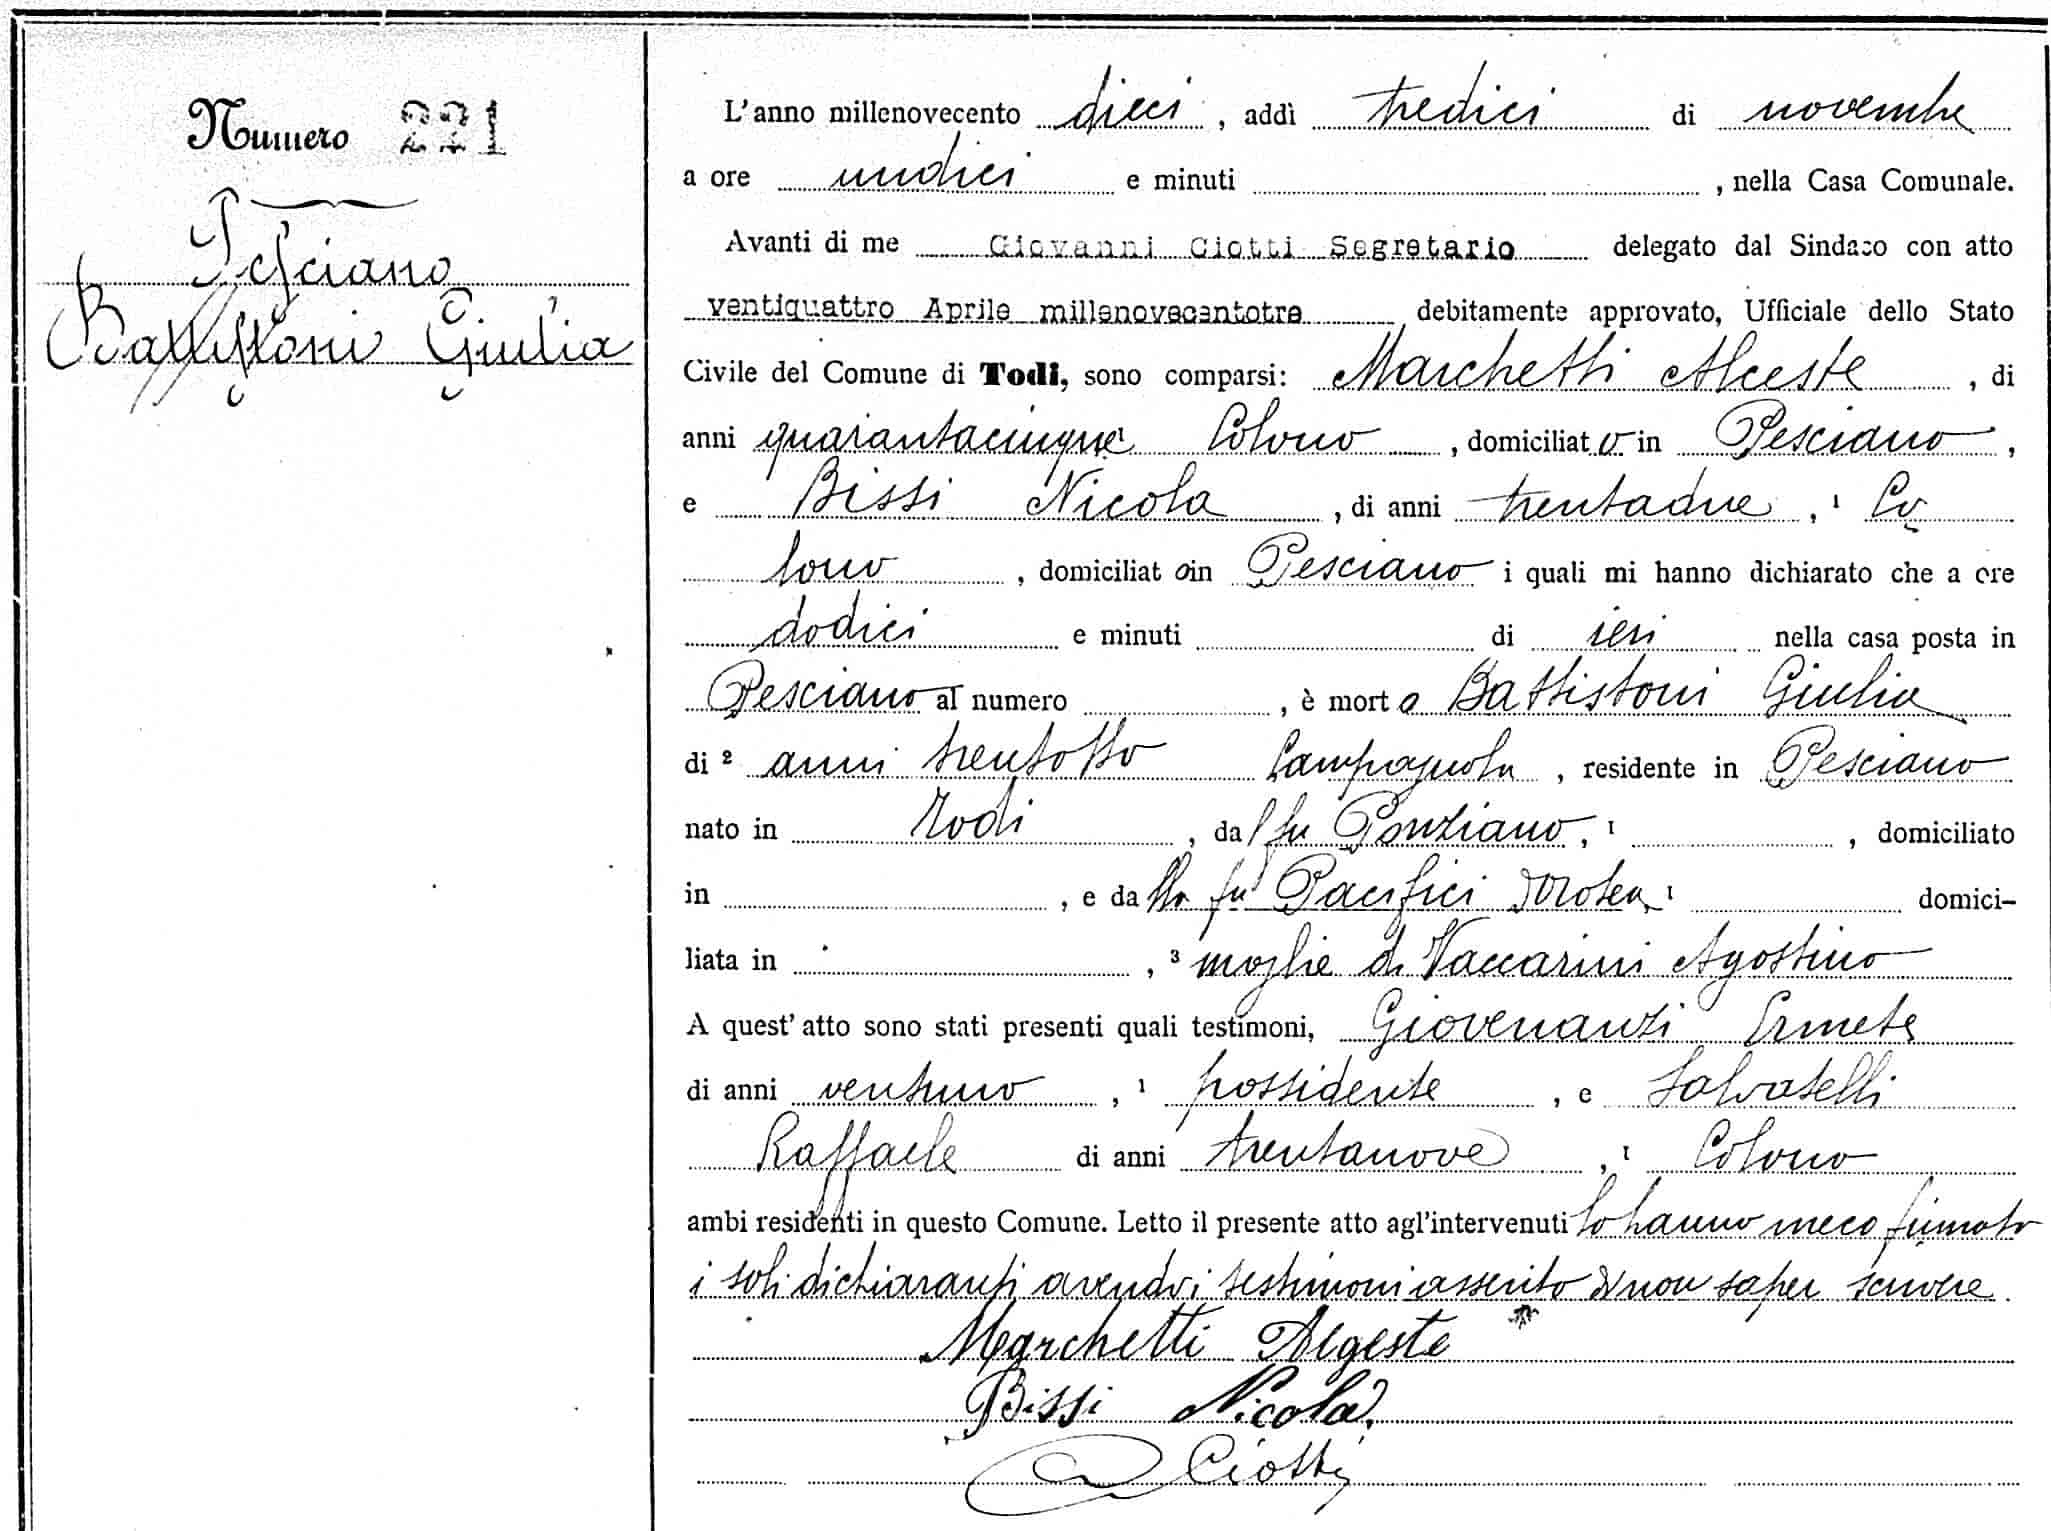 Numero 221
Pesciano
Battistoni Giulia
L'anno millenovecento dieci, addì tredici di novembre
a ore undici e minuti , nella Casa Comunale.
Avanti di me Giovanni Ciotti Segretario delegato dal Sindaco con atto
ventiquattro Aprile millenovecentotre debitamente approvato, Ufficiale dello Stato
Civile del Comune di Todi, sono comparsi: Marchetti Alceste, di
anni quarantacinque 1 Colono, domiciliato in Pesciano,
e Bissi Nicola, di anni trentadue, 1 Co
lono, domiciliato in Pesciano i quali mi hanno dichiarato che a ore
dodici e minuti di ieri nella casa posta in
Pesciano al numero , è morta Battistoni Giulia
di 2 anni trentotto Campagnola, residente in Pesciano
nato in Todi, dal fu Ponziano, 1 , domiciliato
in , e dalla fu Pacifici 1 domici-
liata in , 3 moglie di Vaccarini Agostino
A quest'atto sono stati presenti quali testimoni, Giovenanzi Ermete
di anni ventuno, 1 possidente, e Salvatelli
Raffaele di anni trentanove, 1 Colono
ambi residenti in questo Comune. Letto il presente atto agl'intervenuti lo hanno meco firmato
i soli dichiaranti avendo i testimoni asserito di non saper scrivere.
Marchetti Algeste
Bissi Nicola
Ciotti